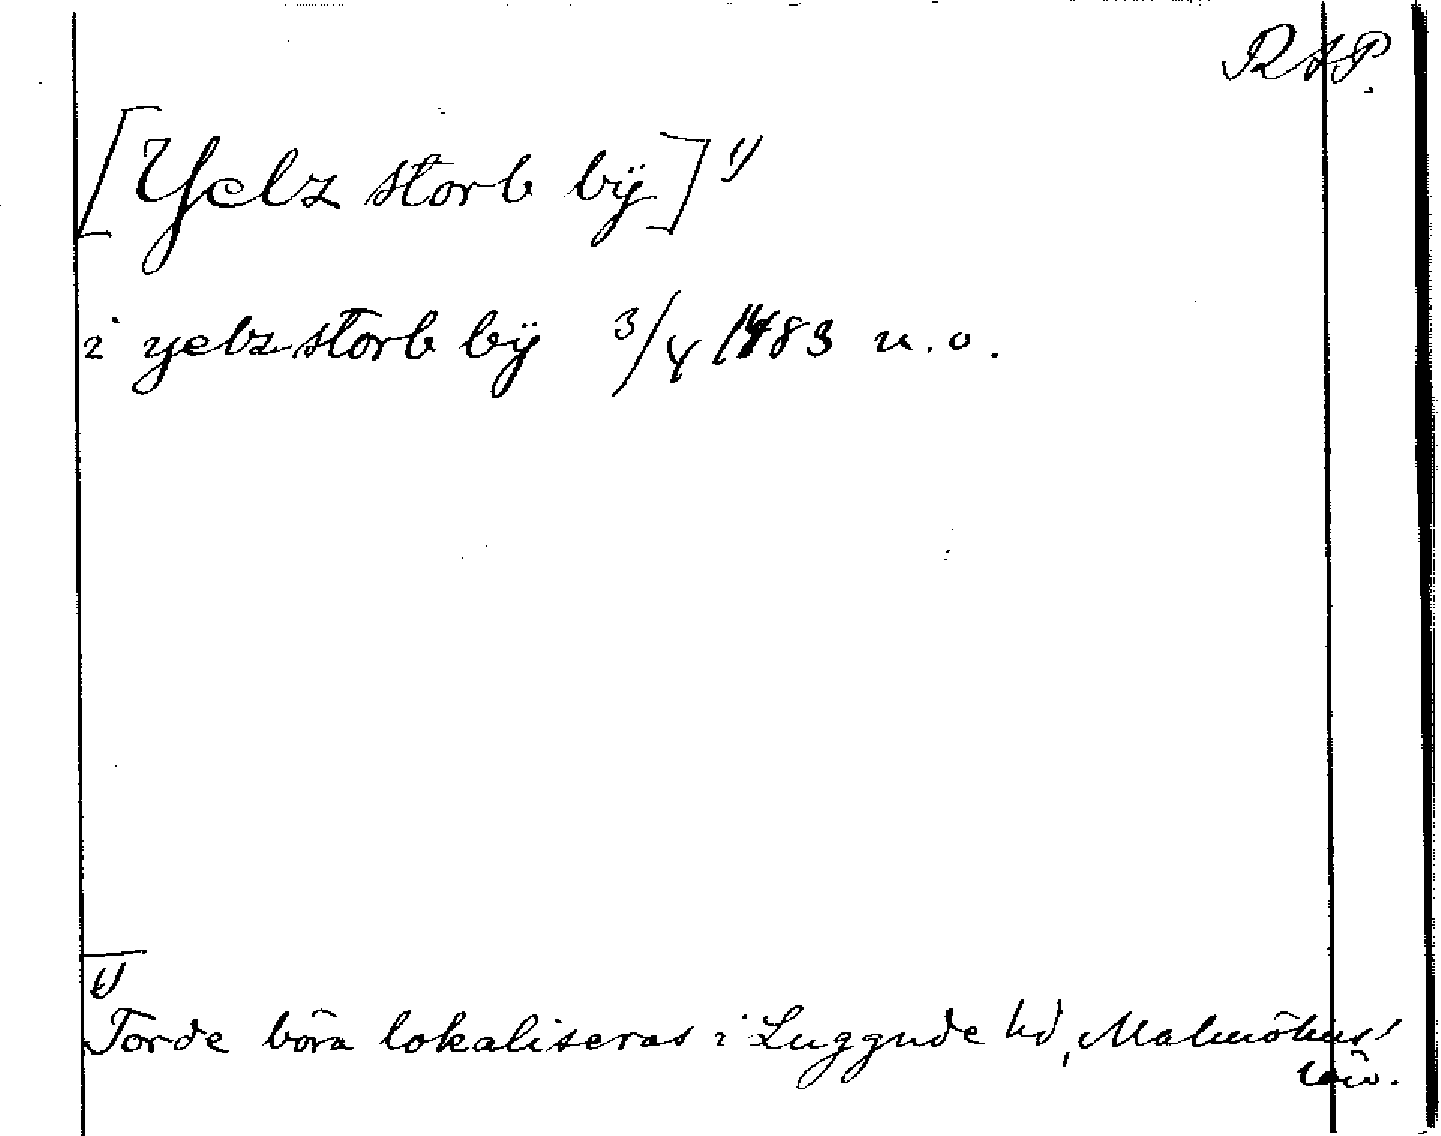 RAP.
[Yelz storb bÿ] 1)
i yelz storb bÿ 3/4 1483 u. o.
1)
Torde böra lokaliseras i Luggude hd, Malmöhus
län.